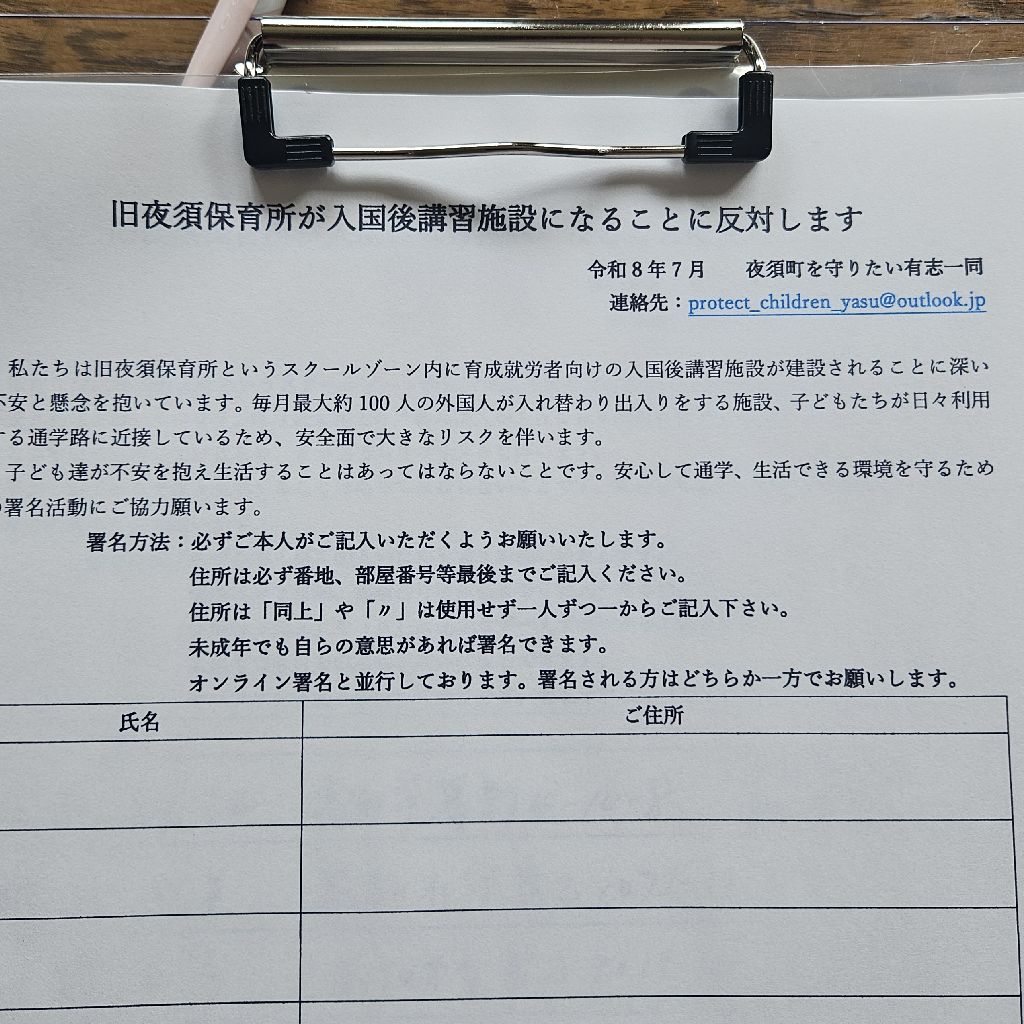 旧夜須保育所が入国後講習施設になることに反対します
令和8年7月　夜須町を守りたい有志一同
連絡先：protect_children_yasu@outlook.jp
私たちは旧夜須保育所というスクールゾーン内に育成就労者向けの入国後講習施設が建設されることに深い
不安と懸念を抱いています。毎月最大約100人の外国人が入れ替わり出入りをする施設、子どもたちが日々利用
する通学路に近接しているため、安全面で大きなリスクを伴います。
子ども達が不安を抱え生活することはあってはならないことです。安心して通学、生活できる環境を守るため
の署名活動にご協力願います。
署名方法：必ずご本人がご記入いただくようお願いいたします。
住所は必ず番地、部屋番号等最後までご記入ください。
住所は「同上」や「〃」は使用せず一人ずつ一からご記入下さい。
未成年でも自らの意思があれば署名できます。
オンライン署名と並行しております。署名される方はどちらか一方でお願いします。
氏名　ご住所